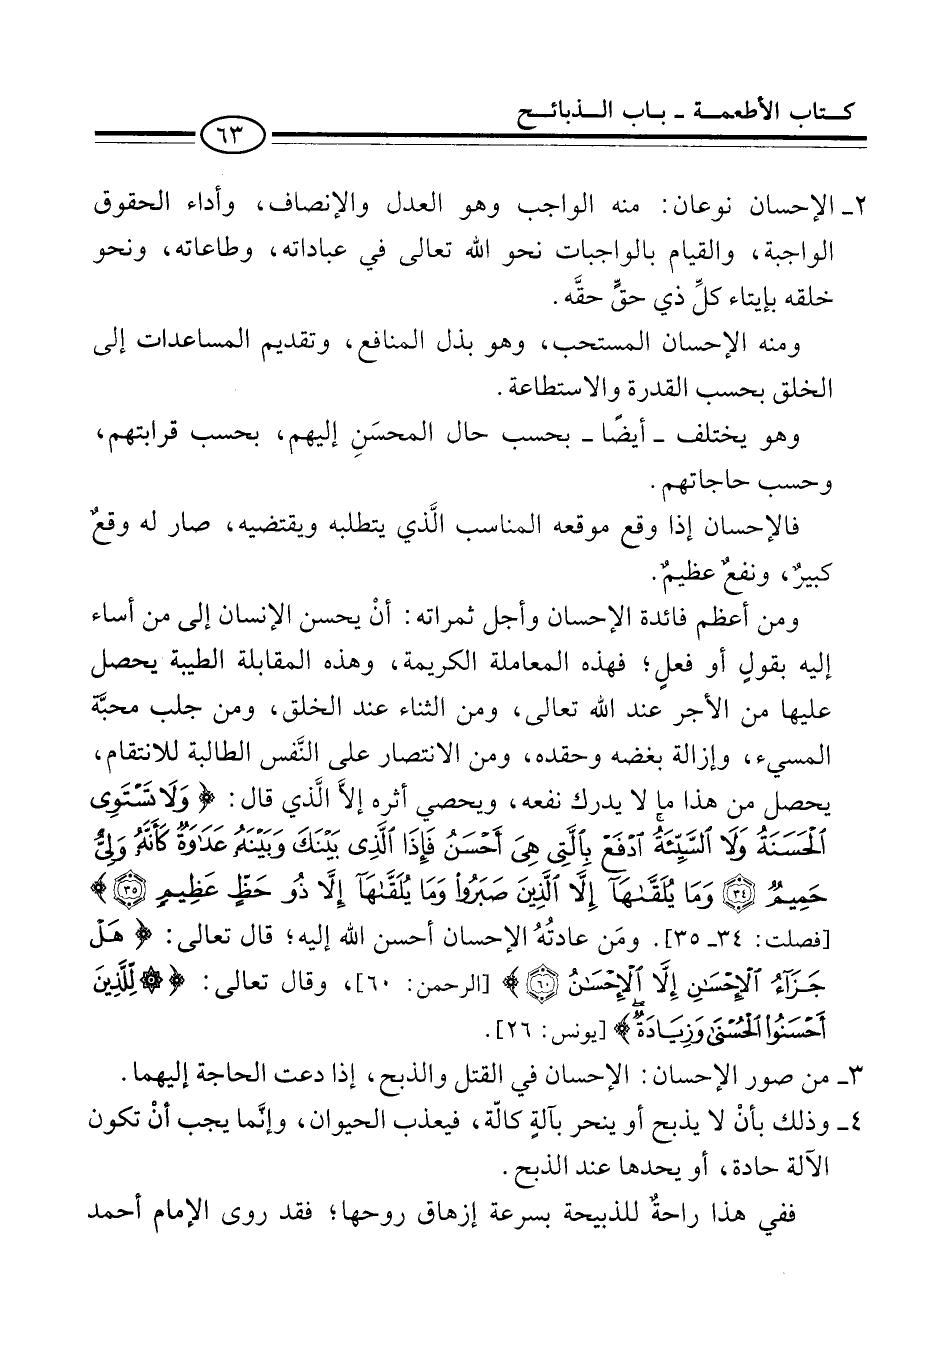 كتاب الأطعمة - باب الذبائح
٦٣
٢ـ الإحسان نوعان: منه الواجب وهو العدل والإنصاف، وأداء الحقوق
الواجبة، والقيام بالواجبات نحو الله تعالى في عباداته، وطاعاته، ونحو
خلقه بإيتاء كلِّ ذي حقٍّ حقَّه.
ومنه الإحسان المستحب، وهو بذل المنافع، وتقديم المساعدات إلى
الخلق بحسب القدرة والاستطاعة.
وهو يختلف ـ أيضًا ـ بحسب حال المحسَنِ إليهم، بحسب قرابتهم،
وحسب حاجاتهم.
فالإحسان إذا وقع موقعه المناسب الَّذي يتطلبه ويقتضيه، صار له وقعٌ
كبيرٌ، ونفعٌ عظيمٌ.
ومن أعظم فائدة الإحسان وأجل ثمراته: أنْ يحسن الإنسان إلى من أساء
إليه بقولٍ أو فعلٍ؛ فهذه المعاملة الكريمة، وهذه المقابلة الطيبة يحصل
عليها من الأجر عند الله تعالى، ومن الثناء عند الخلق، ومن جلب محبَّة
المسيء، وإزالة بغضه وحقده، ومن الانتصار على النَّفس الطالبة للانتقام،
يحصل من هذا ما لا يدرك نفعه، ويحصي أثره إلاَّ الَّذي قال: ﴿وَلَا تَسْتَوِى
ٱلْحَسَنَةُ وَلَا ٱلسَّيِّئَةُ ۚ ٱدْفَعْ بِٱلَّتِى هِىَ أَحْسَنُ فَإِذَا ٱلَّذِى بَيْنَكَ وَبَيْنَهُۥ عَدَٰوَةٌ كَأَنَّهُۥ وَلِىٌّ
حَمِيمٌ ۝٣٤ وَمَا يُلَقَّىٰهَآ إِلَّا ٱلَّذِينَ صَبَرُوا۟ وَمَا يُلَقَّىٰهَآ إِلَّا ذُو حَظٍّ عَظِيمٍ ۝٣٥﴾
[فصلت: ٣٤ـ ٣٥]. ومَن عادتُهُ الإحسان أحسن الله إليه؛ قال تعالى: ﴿هَلْ
جَزَآءُ ٱلْإِحْسَٰنِ إِلَّا ٱلْإِحْسَٰنُ ۝٦٠﴾ [الرحمن: ٦٠]، وقال تعالى: ﴿۞ لِّلَّذِينَ
أَحْسَنُوا۟ ٱلْحُسْنَىٰ وَزِيَادَةٌ ۖ﴾ [يونس: ٢٦].
٣ـ من صور الإحسان: الإحسان في القتل والذبح، إذا دعت الحاجة إليهما.
٤ـ وذلك بأنْ لا يذبح أو ينحر بآلةٍ كالّة، فيعذب الحيوان، وإنَّما يجب أنْ تكون
الآلة حادة، أو يحدها عند الذبح.
ففي هذا راحةٌ للذبيحة بسرعة إزهاق روحها؛ فقد روى الإمام أحمد